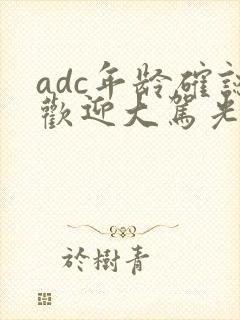 adc年龄確認
歡迎大駕光
於樹青